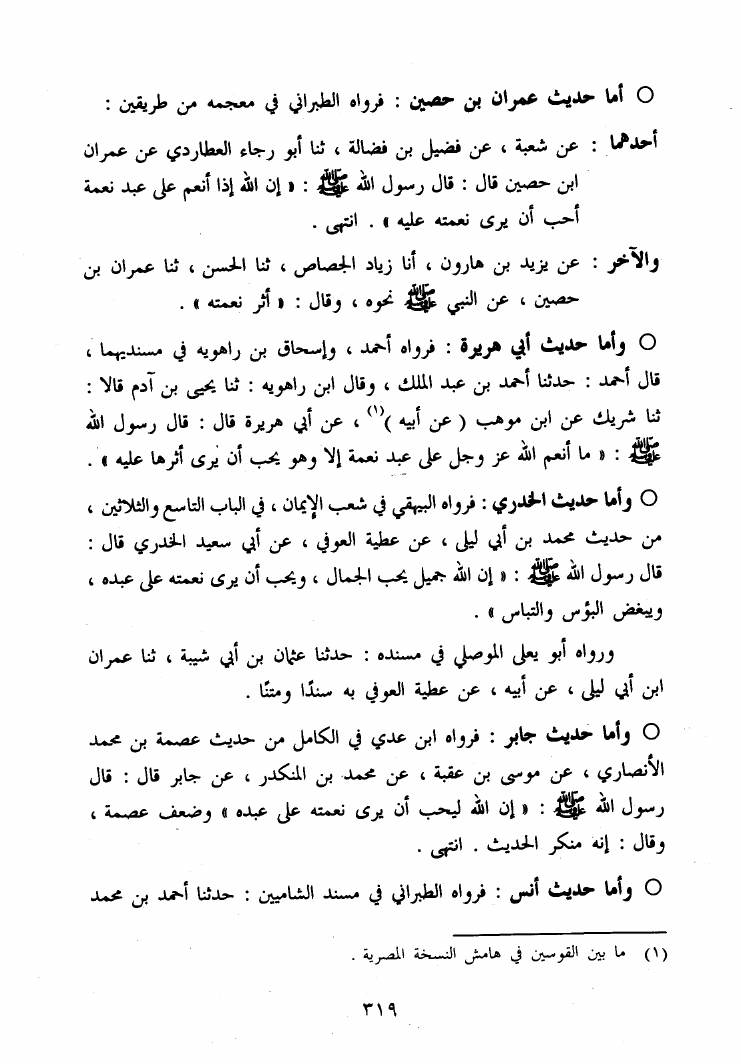 ○ أما حديث عمران بن حصين : فرواه الطبراني في معجمه من طريقين :
أحدهما : عن شعبة ، عن فضيل بن فضالة ، ثنا أبو رجاء العطاردي عن عمران
ابن حصين قال : قال رسول الله ﷺ : « إن الله إذا أنعم على عبد نعمة
أحب أن يرى نعمته عليه » . انتهى .
والآخر : عن يزيد بن هارون ، أنا زياد الجصاص ، ثنا الحسن ، ثنا عمران بن
حصين ، عن النبي ﷺ نحوه ، وقال : « أثر نعمته » .
○ وأما حديث أبي هريرة : فرواه أحمد ، وإسحاق بن راهويه في مسنديهما ،
قال أحمد : حدثنا أحمد بن عبد الملك ، وقال ابن راهويه : ثنا يحيى بن آدم قالا :
ثنا شريك عن ابن موهب ( عن أبيه )(١) ، عن أبي هريرة قال : قال رسول الله
ﷺ : « ما أنعم الله عز وجل على عبد نعمة إلا وهو يحب أن يُرى أثرها عليه » .
○ وأما حديث الخدري : فرواه البيهقي في شعب الإيمان ، في الباب التاسع والثلاثين ،
من حديث محمد بن أبي ليلى ، عن عطية العوفي ، عن أبي سعيد الخدري قال :
قال رسول الله ﷺ : « إن الله جميل يحب الجمال ، ويحب أن يرى نعمته على عبده ،
ويبغض البؤس والتباس » .
ورواه أبو يعلى الموصلي في مسنده : حدثنا عثمان بن أبي شيبة ، ثنا عمران
ابن أبي ليلى ، عن أبيه ، عن عطية العوفي به سندًا ومتنًا .
○ وأما حديث جابر : فرواه ابن عدي في الكامل من حديث عصمة بن محمد
الأنصاري ، عن موسى بن عقبة ، عن محمد بن المنكدر ، عن جابر قال : قال
رسول الله ﷺ : « إن الله ليحب أن يرى نعمته على عبده » وضعف عصمة ،
وقال : إنه منكر الحديث . انتهى .
○ وأما حديث أنس : فرواه الطبراني في مسند الشاميين : حدثنا أحمد بن محمد
(١) ما بين القوسين في هامش النسخة المصرية .
٣١٩